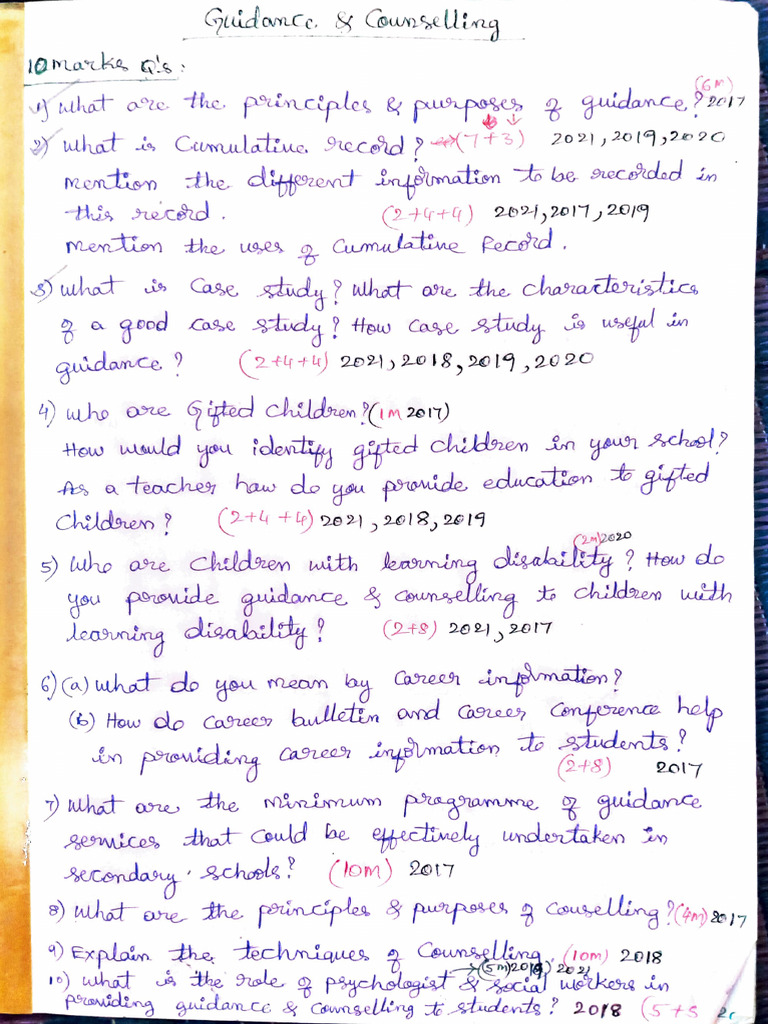 Guidance & Counselling
10 marks Q's:
(6m)
1) What are the principles & purposes of guidance? 2017
2) What is Cumulative record? (7+3) 2021, 2019, 2020
mention the different information to be recorded in
this record. (2+4+4) 2021, 2017, 2019
mention the uses of Cumulative Record.
3) What is Case study? What are the characteristics
of a good case study? How case study is useful in
guidance? (2+4+4) 2021, 2018, 2019, 2020
4) Who are Gifted children? (1M 2017)
How would you identify gifted children in your school?
As a teacher how do you provide education to gifted
Children? (2+4+4) 2021, 2018, 2019
(2m) 2020
5) Who are children with learning disability? How do
you provide guidance & counselling to children with
learning disability? (2+8) 2021, 2017
6) (a) What do you mean by career information?
(b) How do career bulletin and career conference help
in providing career information to students?
(2+8) 2017
7) What are the minimum programme of guidance
services that could be effectively undertaken in
secondary schools? (10m) 2017
8) What are the principles & purposes of couselling? (4m) 2017
9) Explain the techniques of Counselling. (10m) 2018
(5m) 2019, 2021
10) What is the role of psychologist & social workers in
providing guidance & counselling to students? 2018 (5+5